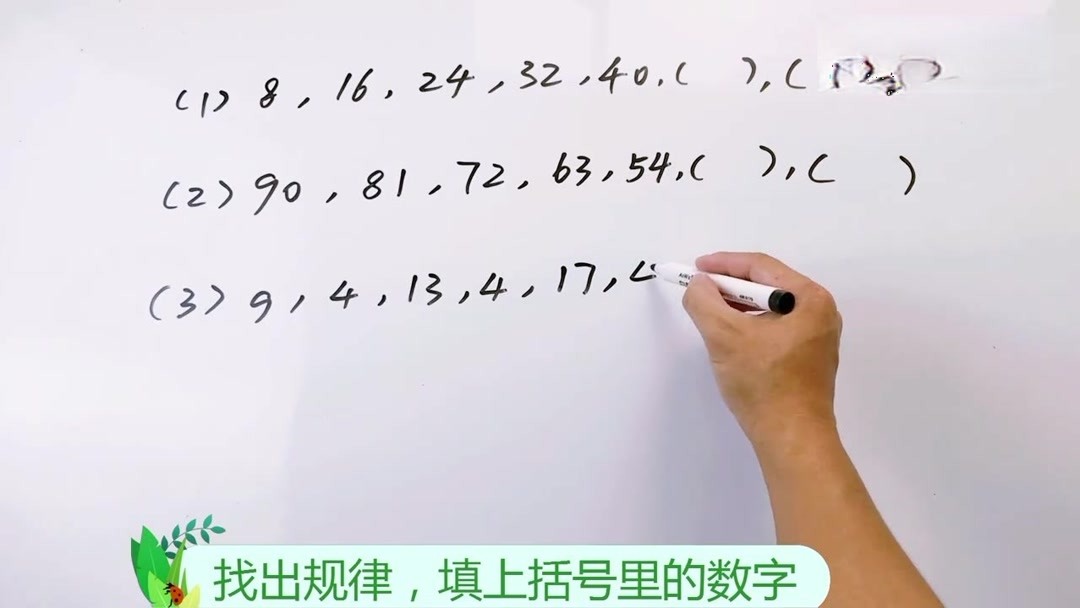 (1) 8, 16, 24, 32, 40, ( ), (
(2) 90, 81, 72, 63, 54, ( ), ( )
(3) 9, 4, 13, 4, 17,
找出规律，填上括号里的数字